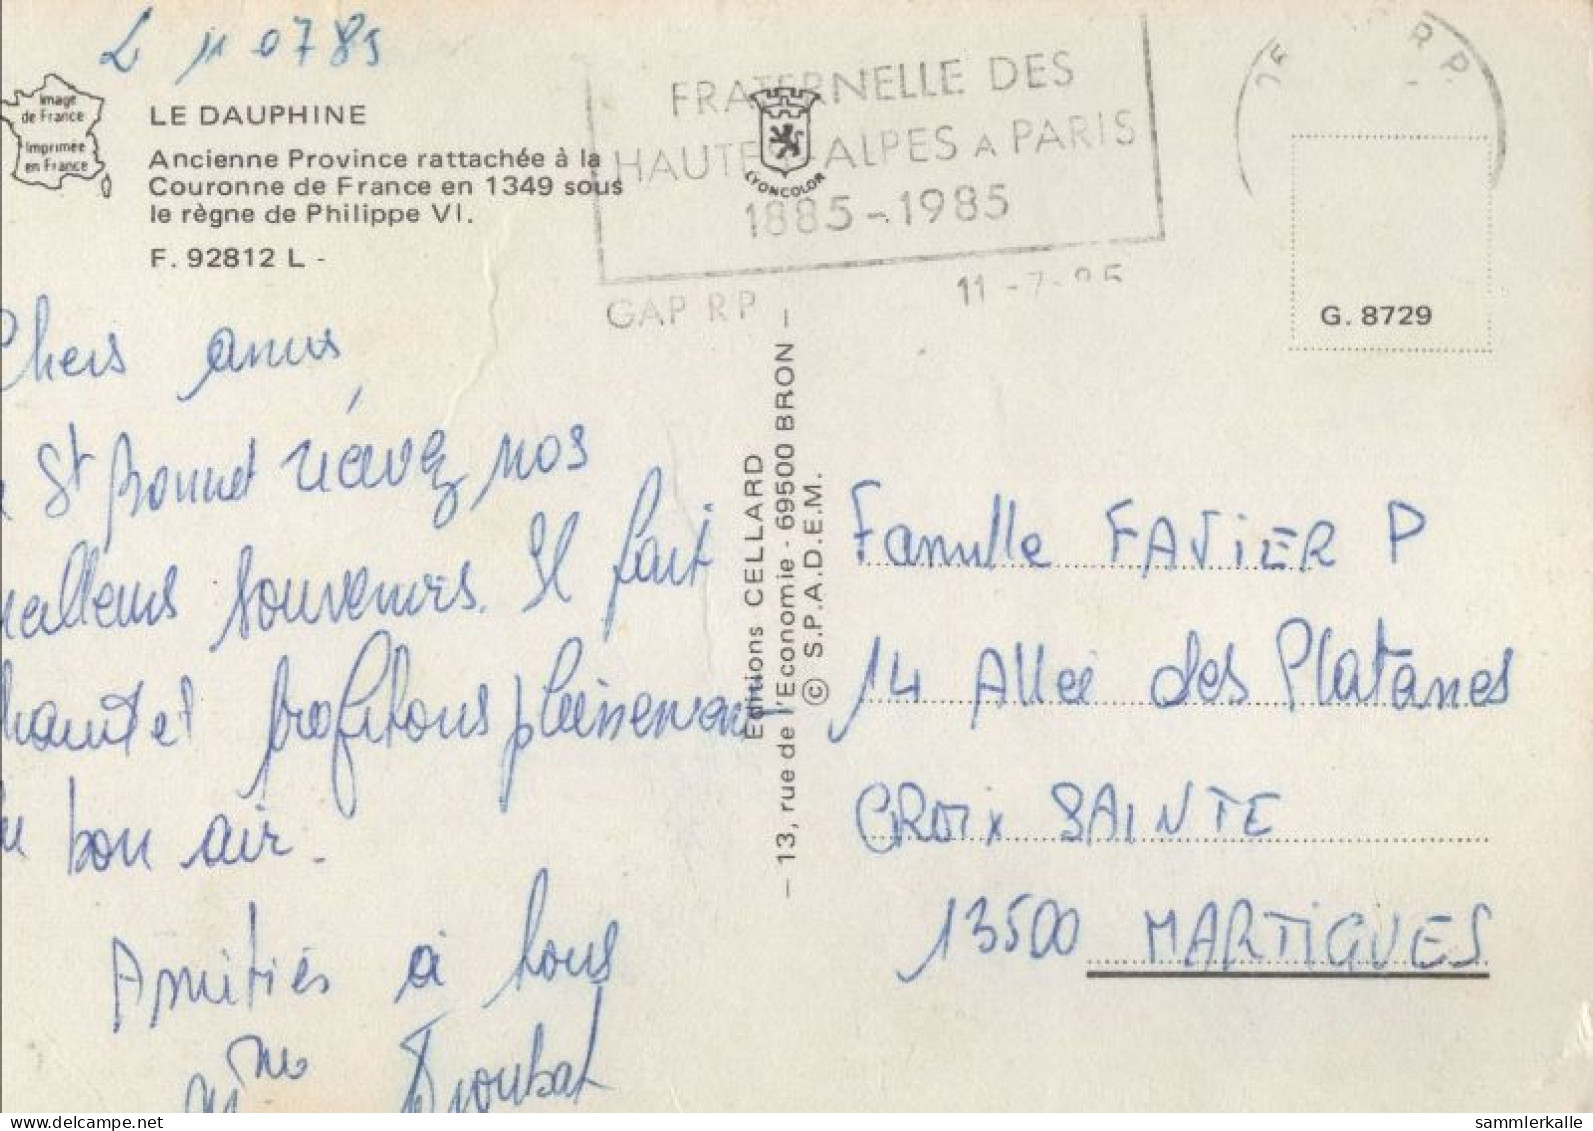 L 11 07 85
Image
de France
Imprimée
en France
LE DAUPHINE
Ancienne Province rattachée à la
Couronne de France en 1349 sous
le règne de Philippe VI.
F. 92812 L -
FRATERNELLE DES
HAUTES-ALPES A PARIS
1885-1985
GAP RP
11-7-85
LYONCOLOR
R P
G. 8729
Chers amis
St Bonnet recevez nos
meilleurs souvenirs. Il fait
chaud et profitons pleinement
du bon air.
Amitiés à tous
Mme
Editions CELLARD
– 13, rue de l'Economie - 69500 BRON –
© S.P.A.D.E.M.
Famille FAVIER P
14 Allée des Platanes
CROIX SAINTE
13500 MARTIGUES
www.delcampe.net
sammlerkalle